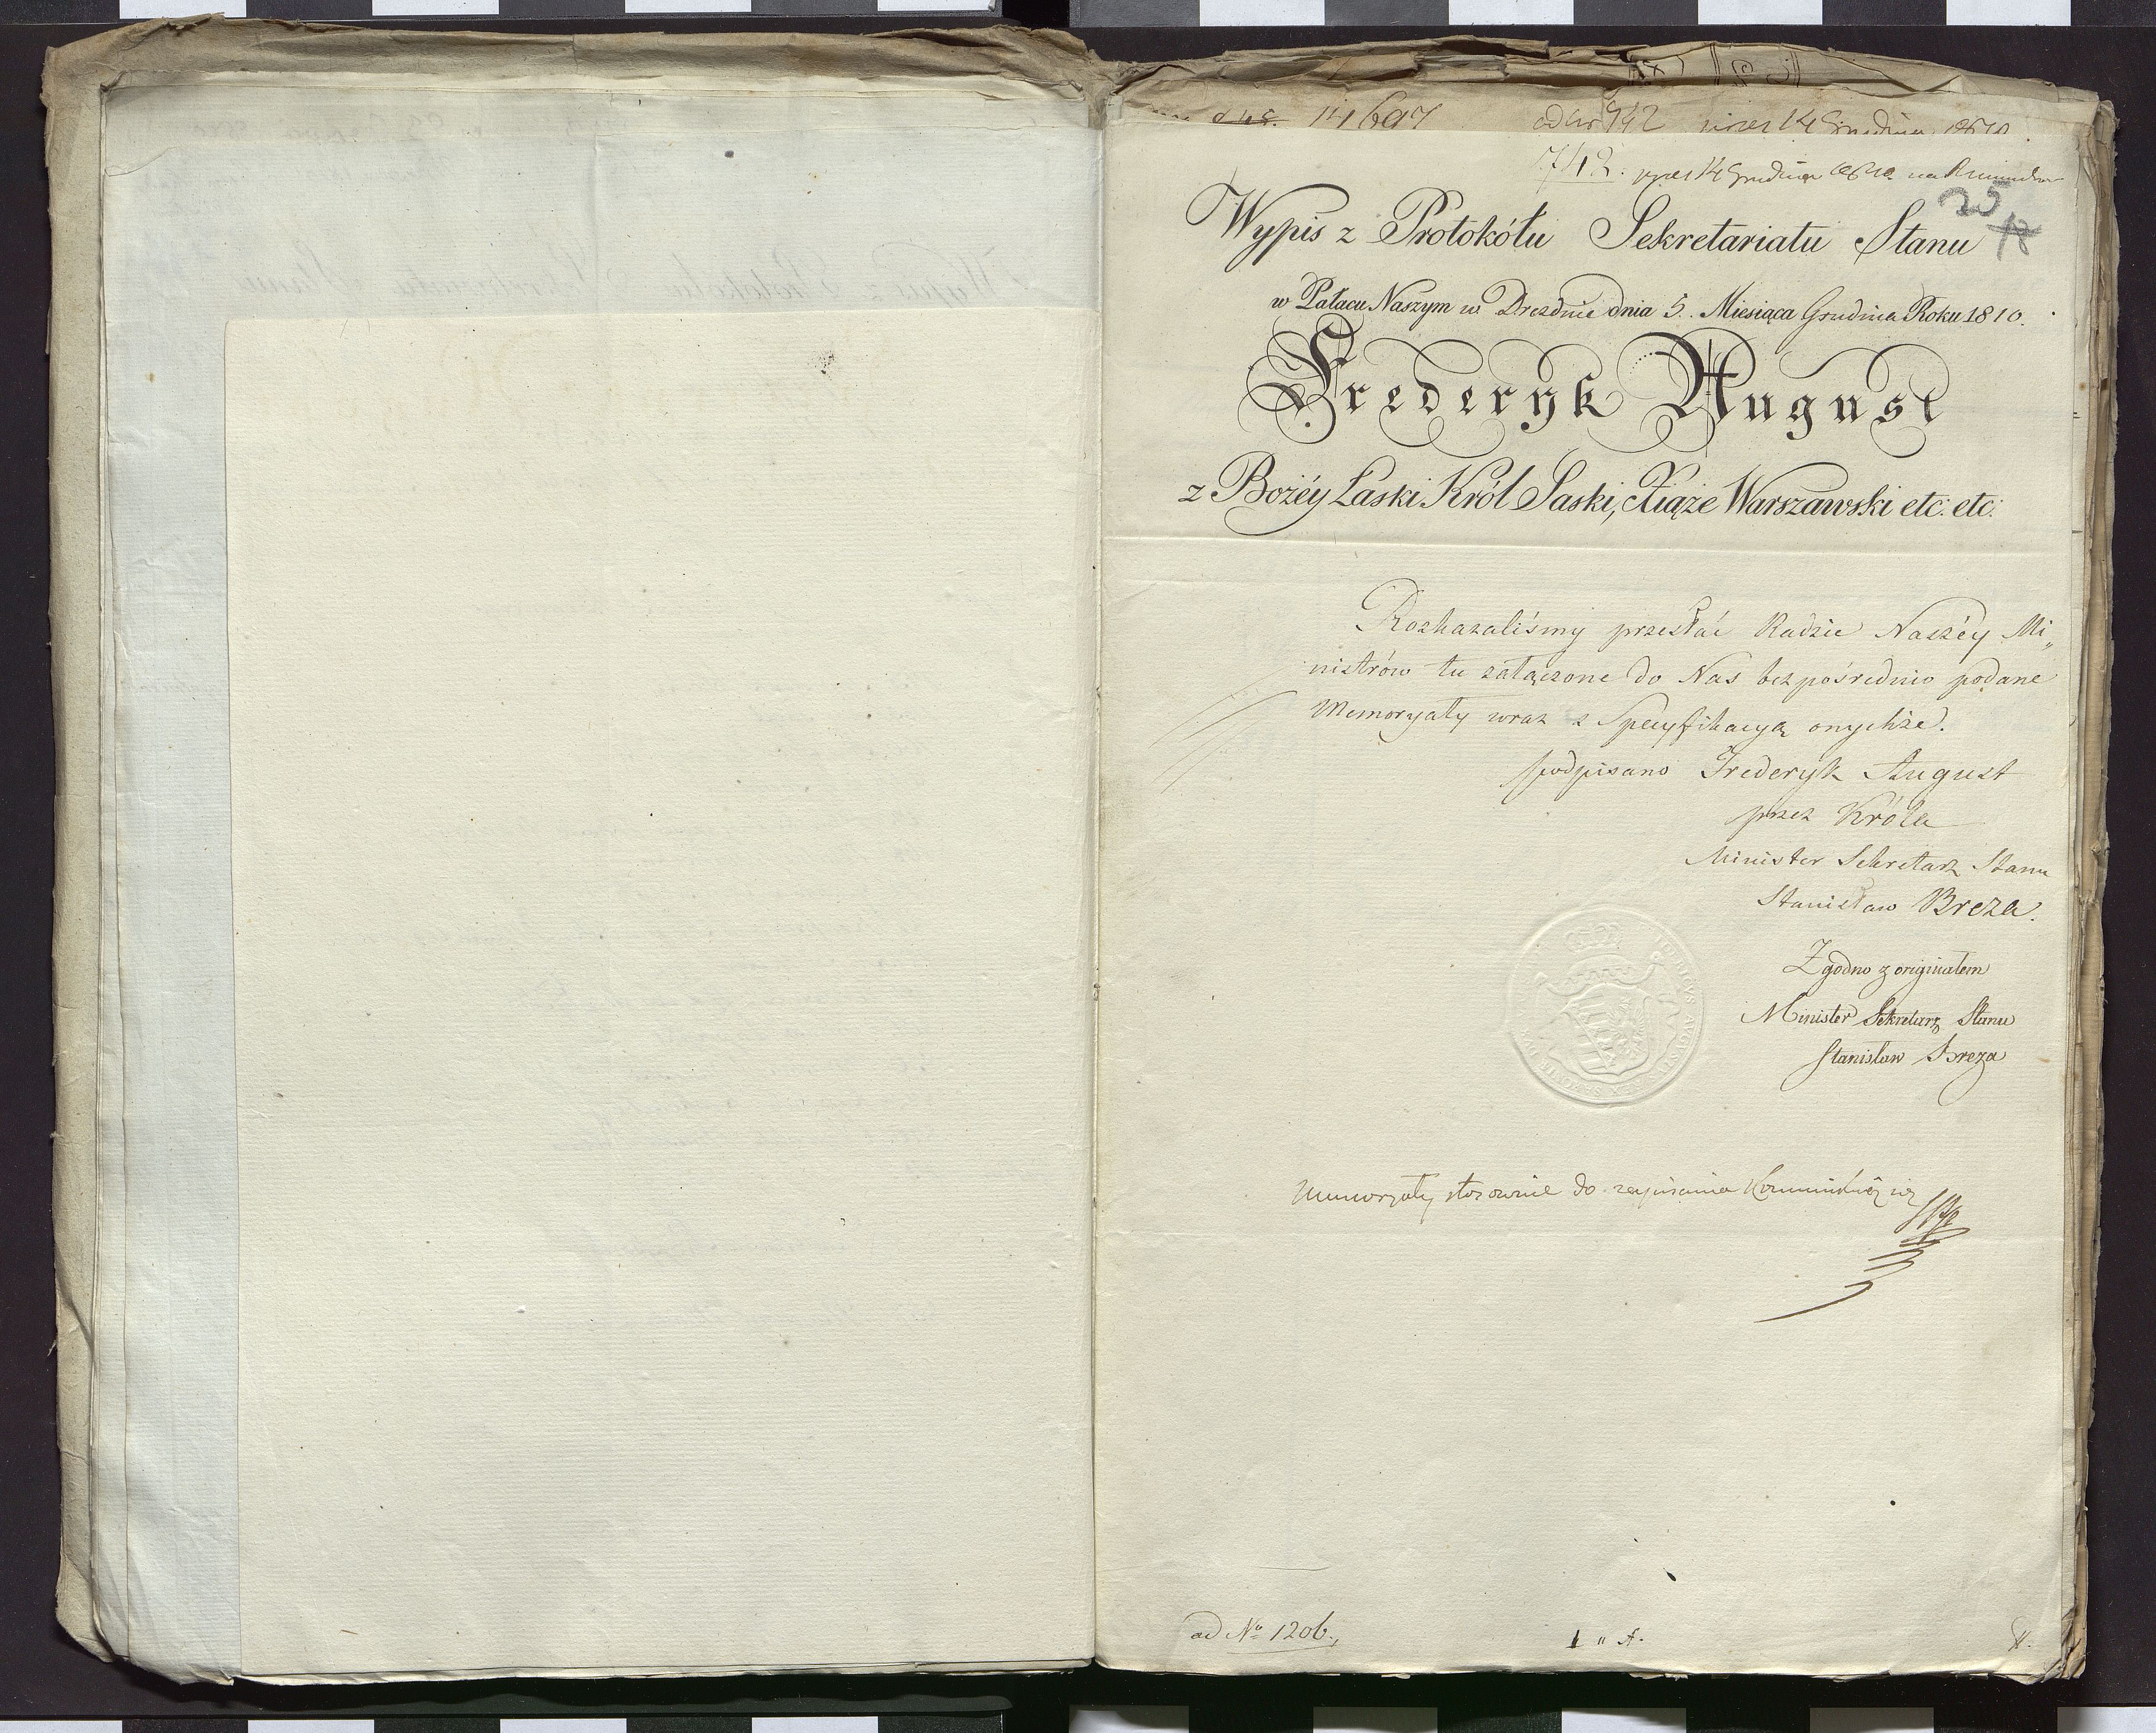 14697 ad Nr 742 prez 14 Grudnia 1810
742. prez 14 Grudnia 1810
25
18
Wypis z Protokółu Sekretariatu Stanu
w Pałacu Naszym w Dreźnie dnia 5. Miesiąca Grudnia Roku 1810.
Frederyk August
z Bożéy Łaski Król Saski, Xiąże Warszawski etc: etc:
Rozkazaliśmy przesłać Radzie Naszéy Mi„
nistrów tu załączone do Nas bezpośrednio podane
Memoryały wraz z Specyfikacyą onychże.
/podpisano Frederyk August
przez Króla
Minister Sekretarz Stanu
Stanisław Breza.
Zgodno z originałem
Minister Sekretarz Stanu
Stanisław Breza
Memoryały stosownie do
ad No 1206.,
1 " A.